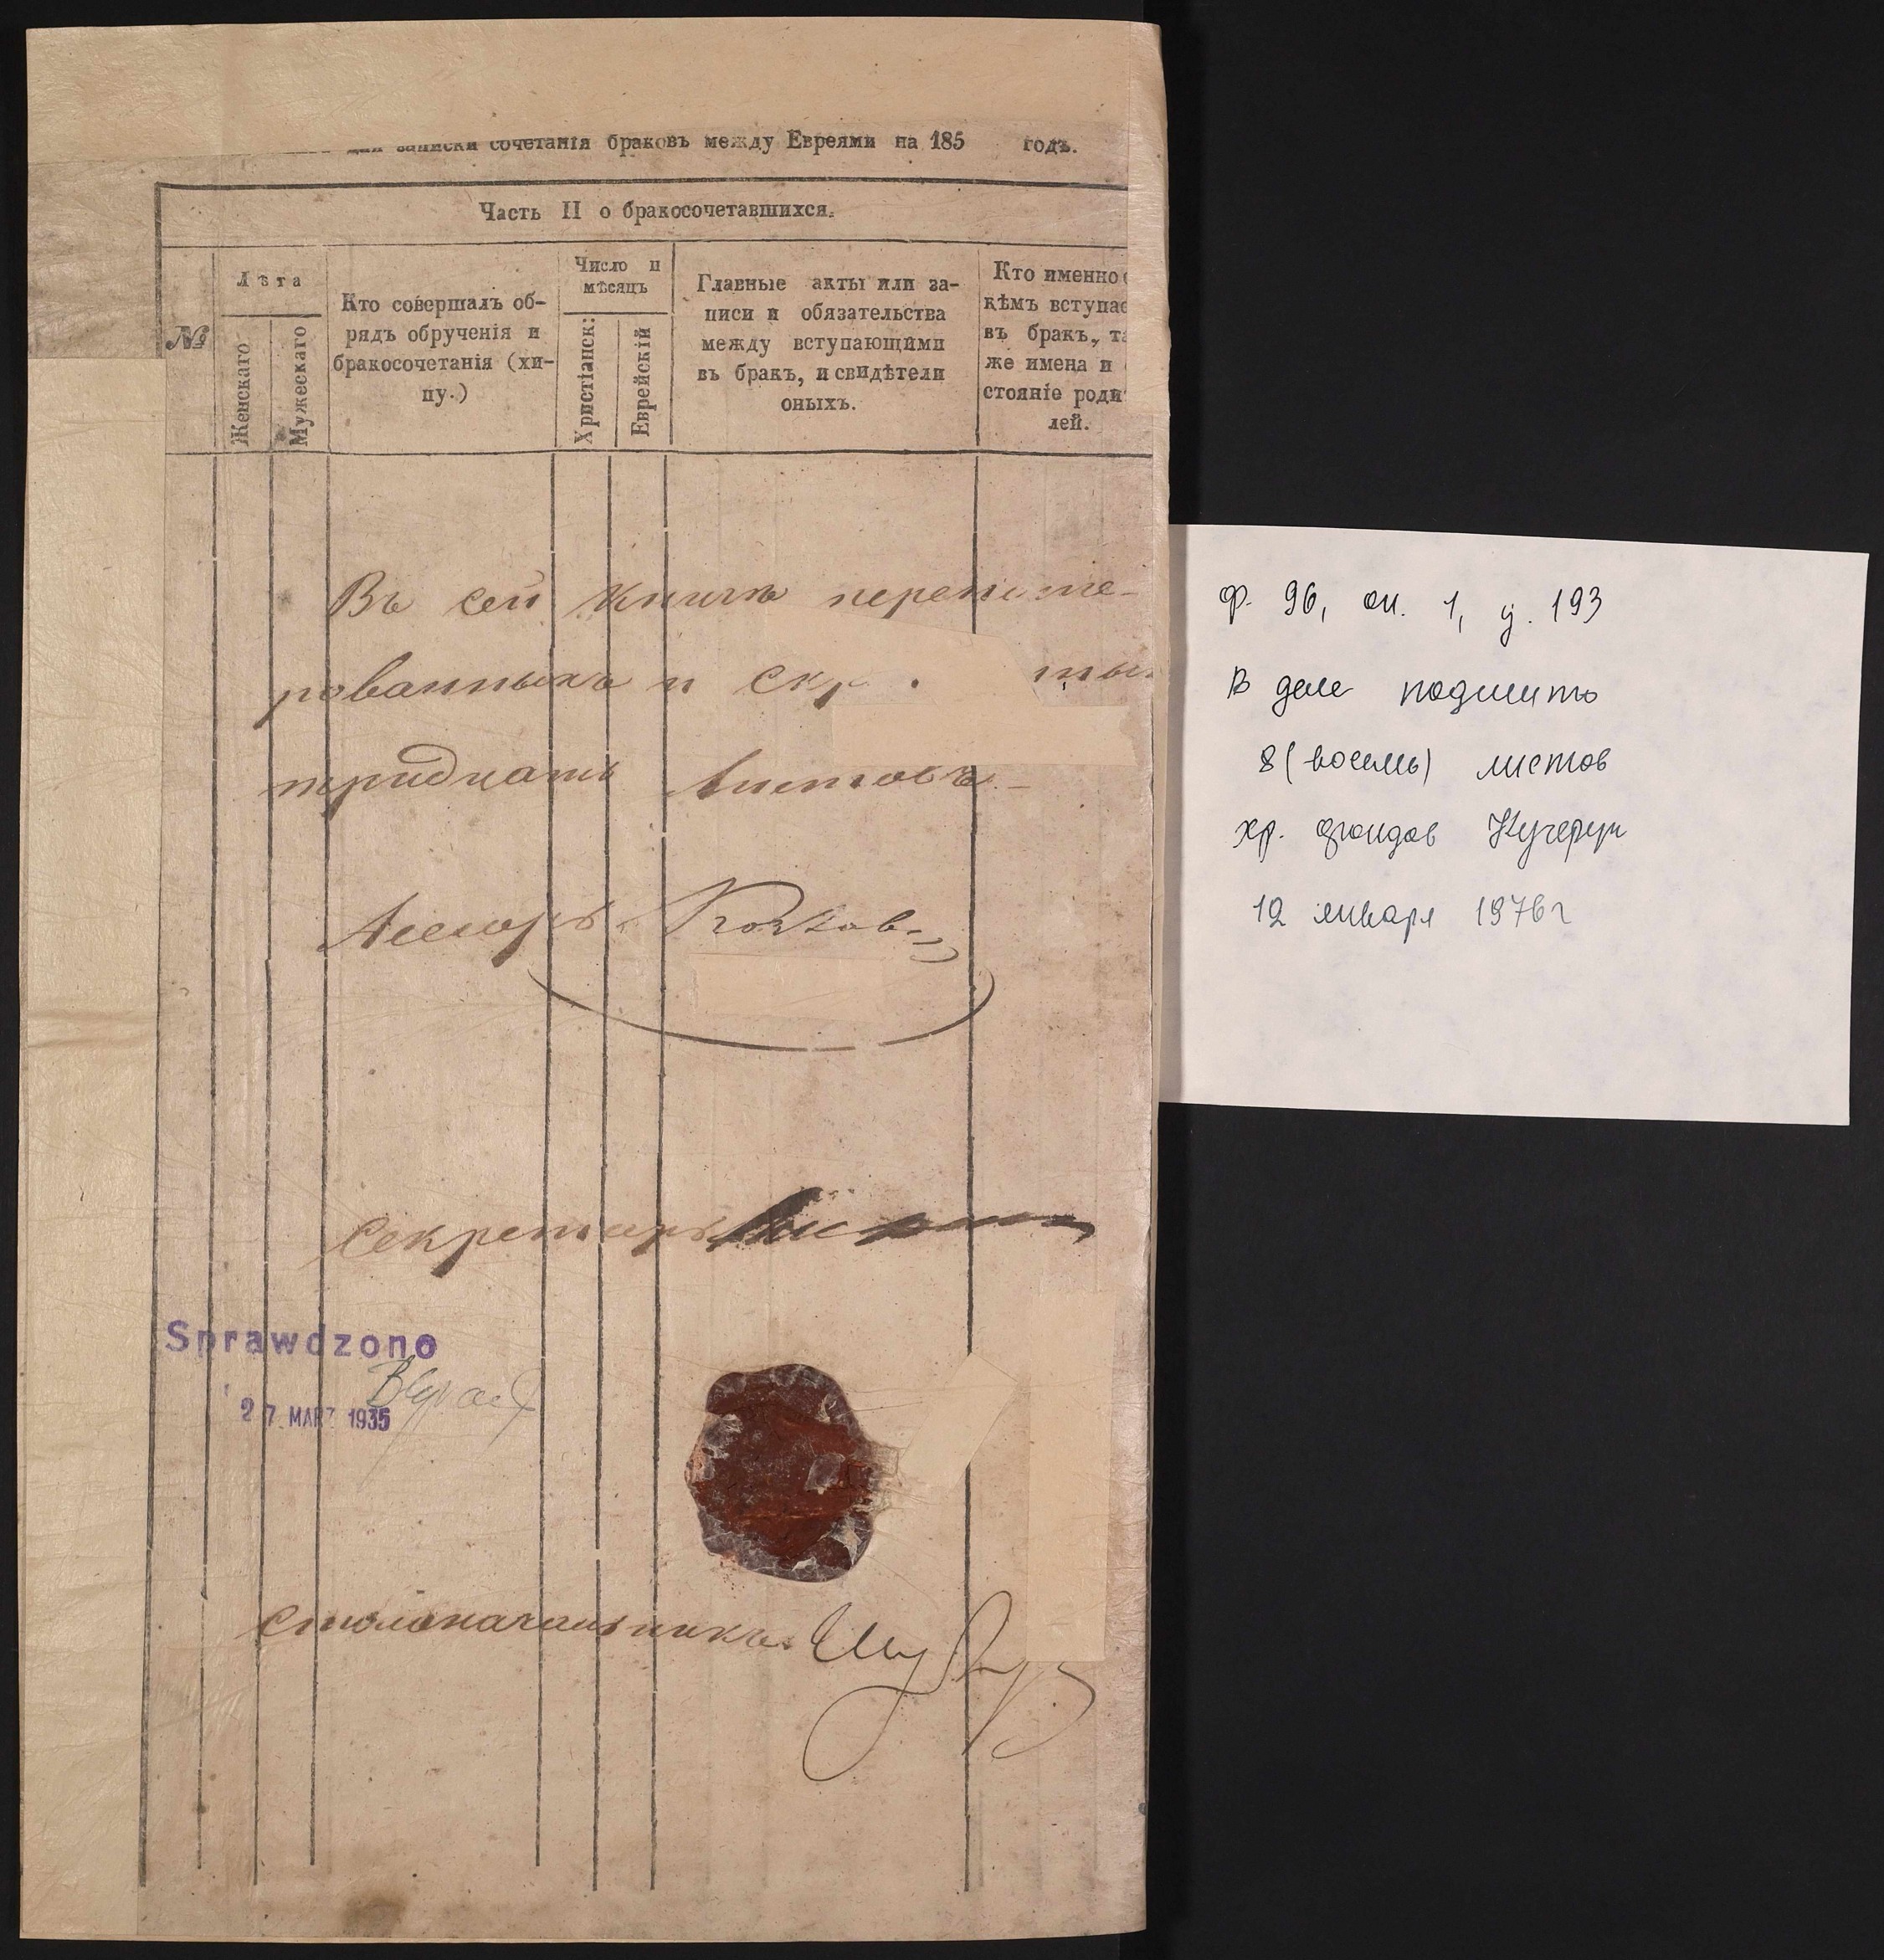 для записки сочетанія браковъ между Евреями на 185 годъ.
Часть II о бракосочетавшихся.
№
Лѣта
Женскаго
Мужескаго
Кто совершалъ об-
рядъ обрученія и
бракосочетанія (хи-
пу.)
Число и
мѣсяцъ
Христіанск:
Еврейскій
Главные акты или за-
писи и обязательства
между вступающими
въ бракъ, и свидѣтели
оныхъ.
Кто именно с
кѣмъ вступае
въ бракъ, та
же имена и
стояніе роди
лей.
Въ сей книгѣ перенуме-
рованныхъ и скр ны
тридцать листовъ
Асесоръ
Секретарь
Sprawdzono
27 MARZ 1935
Столоначальникъ
Ф. 96, оп. 1, у. 193
В деле подшито
8 (восемь) листов
хр. фондов Кучерук
12 января 1976 г